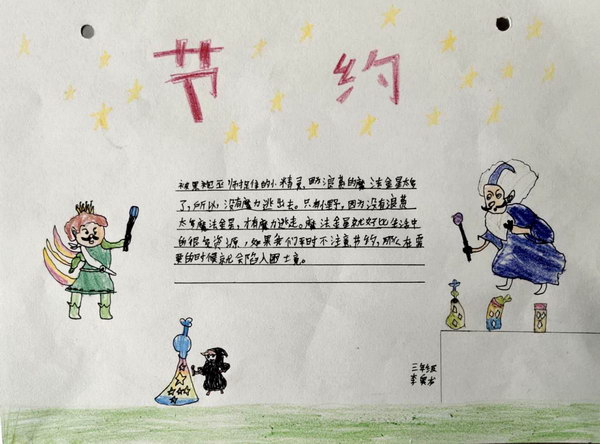 节约
被黑袍巫师捉住的小精灵,因为浪费的魔法金星太多
了,所以,没有魔力逃出去。只有小野,因为没有浪费
太多魔法金星,才有魔力逃走。魔法金星就好比生活中
的很多资源,如果我们平时不注意节约,那么在需
要的时候就会陷入困境。
三年级
李